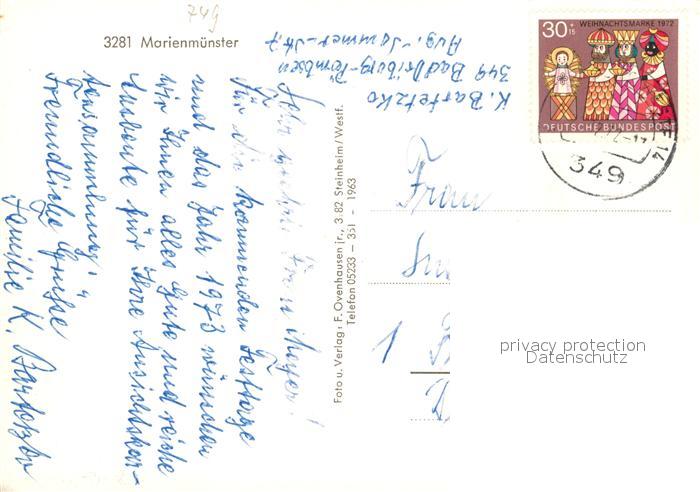 749
3281 Marienmünster
K. Bartetzko
349 Bad Driburg-Pömbsen
Aug.-Sommer-Str. 7
Sehr geehrte Frau Meyer!
Für die kommenden Festtage
und das Jahr 1973 wünschen
wir Ihnen alles Gute und reiche
Ausbeute für Ihre Ansichtskar-
tensammlung.
Freundliche Grüße
Familie K. Bartetzko
Foto u. Verlag: F. Ovenhausen jr., 3.82 Steinheim/Westf.
Telefon 05233 – 351 – 1963
30+15
WEIHNACHTSMARKE 1972
DEUTSCHE BUNDESPOST
349
Frau
1
privacy protection
Datenschutz